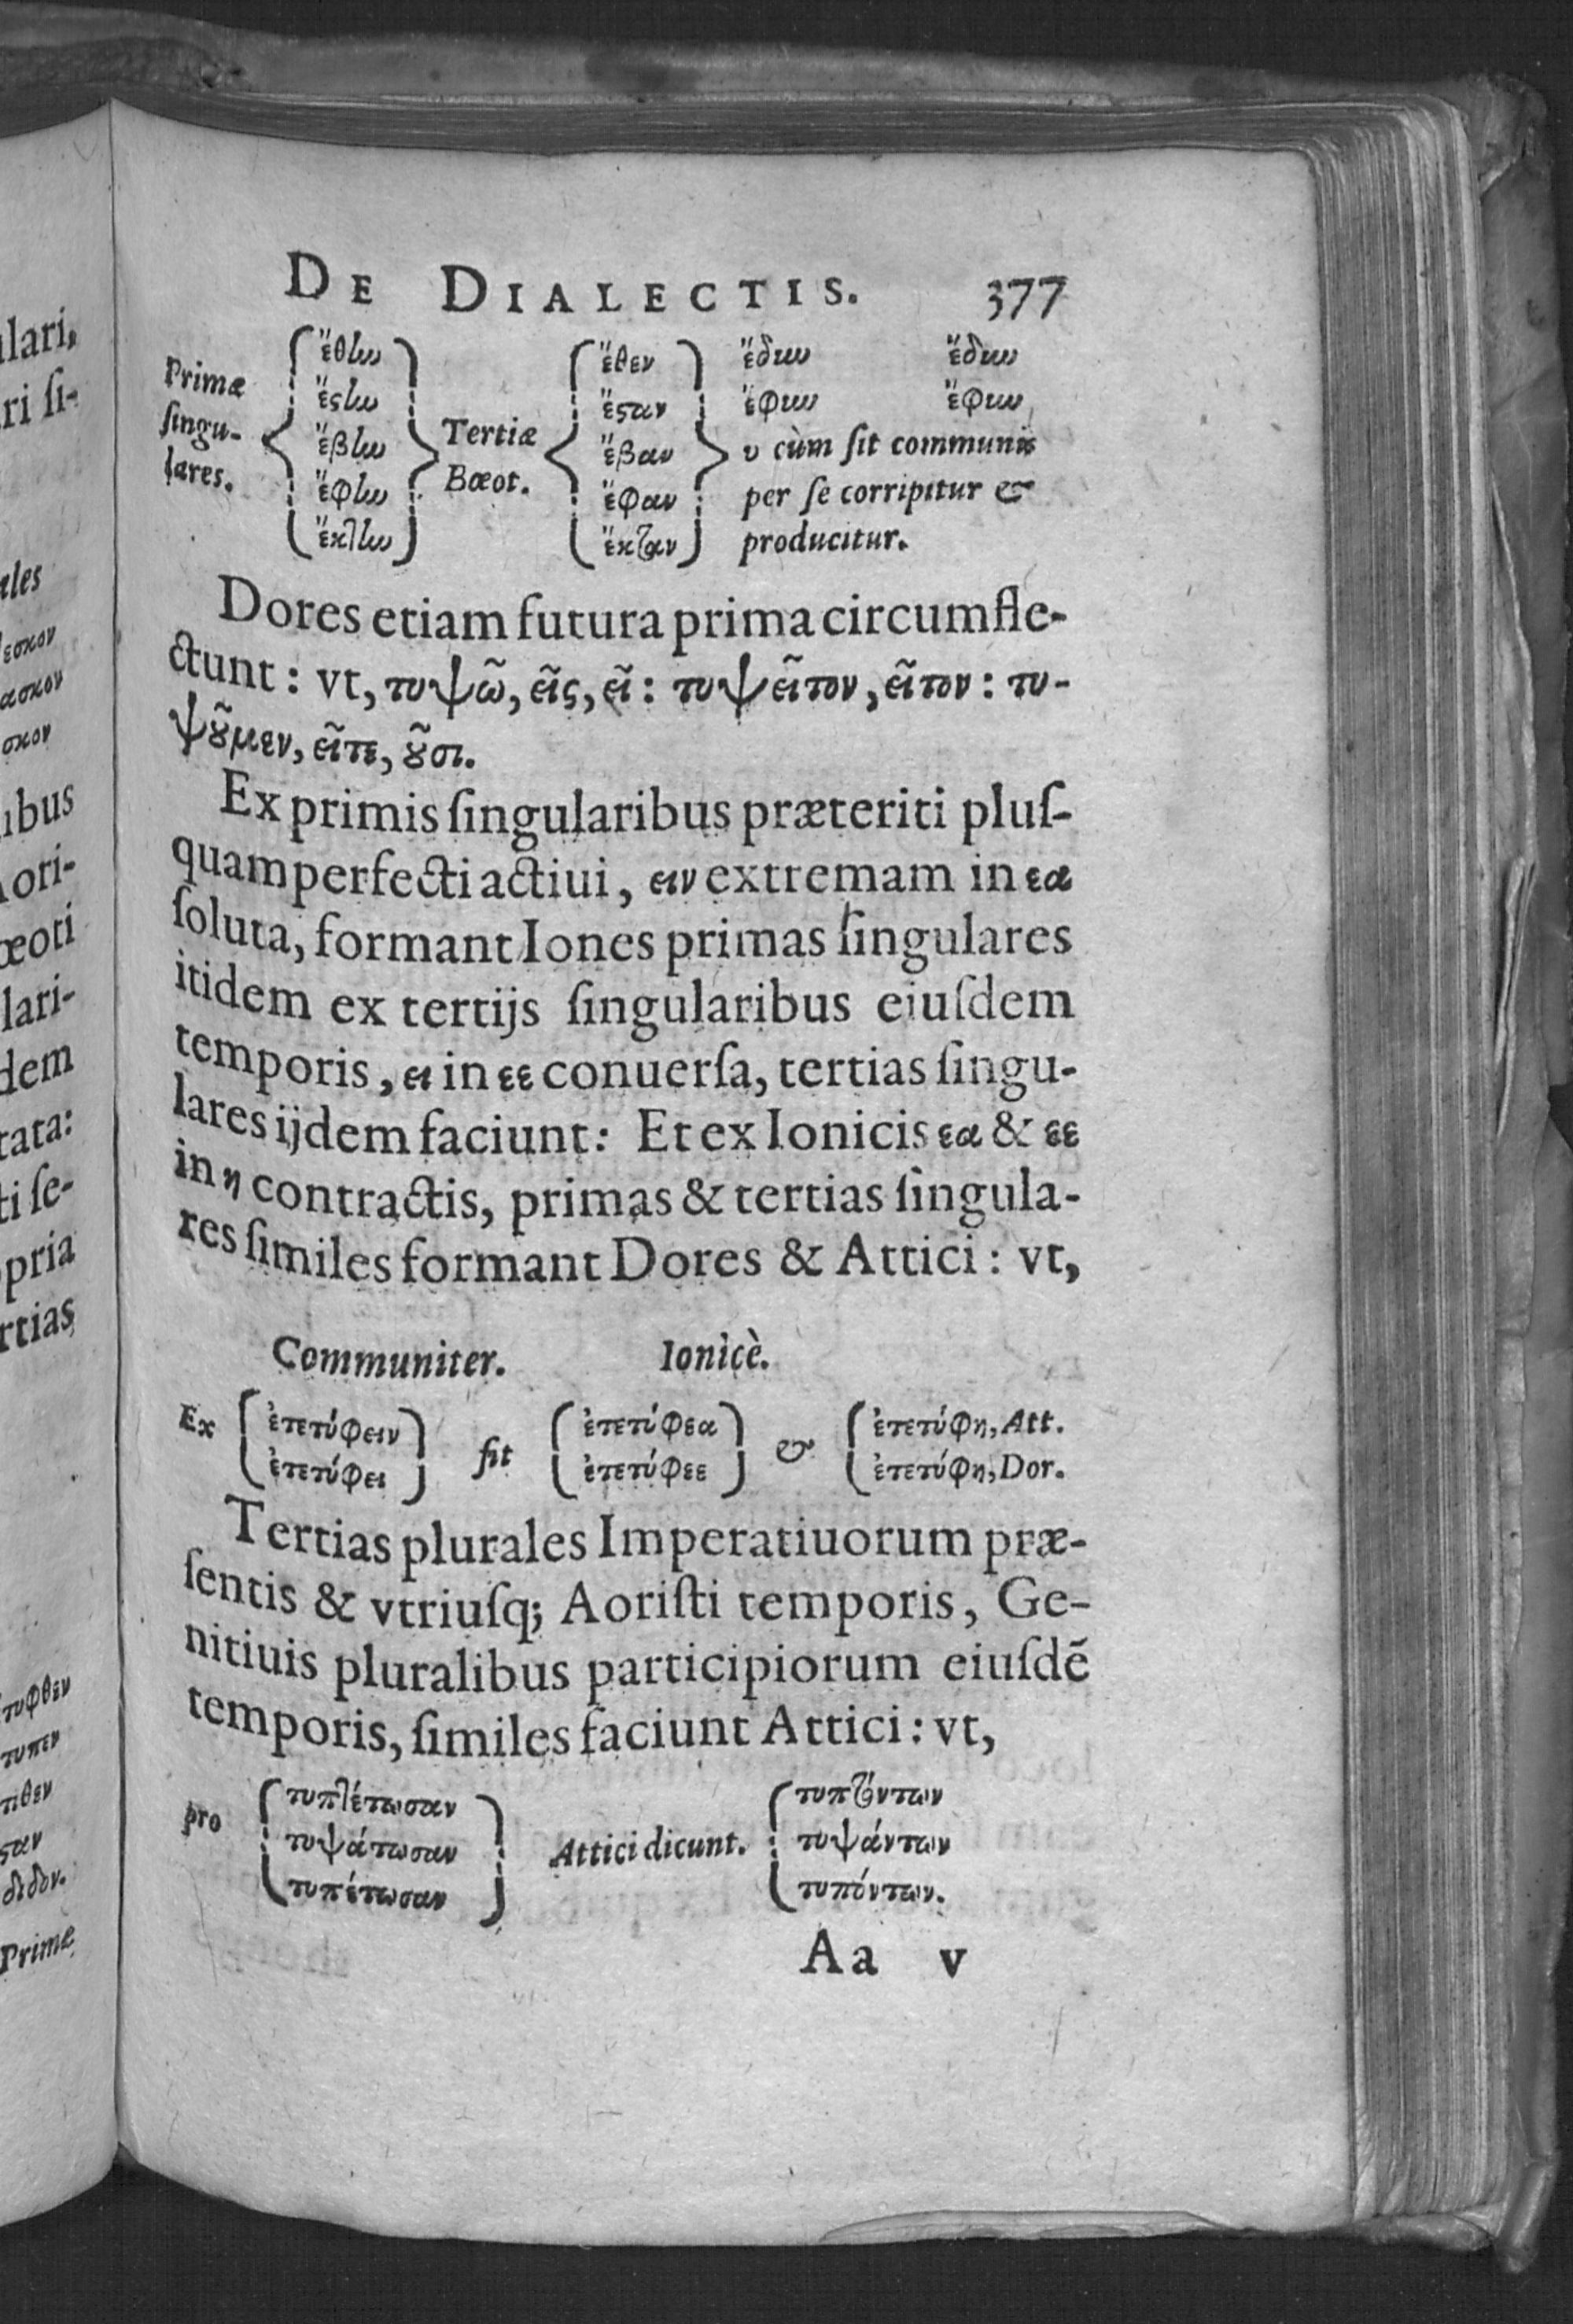 De Dialectis. 377
Primæ ſingulares. { ἔθην ἔϛην ἔβην ἔφην ἔκτην } Tertiæ Bœot. { ἔθεν ἔϛαν ἔβαν ἔφαν ἔκταν }
ἔδυν ἔδυν
ἔφυν ἔφυν
υ cùm ſit communis
per ſe corripitur &
producitur.
Dores etiam futura prima circumfle-
ctunt: vt, τυψῶ, εῖς, εῖ: τυψεῖτον, εῖτον: τυ-
ψοῦμεν, εῖτε, οῦσι.
Ex primis ſingularibus præteriti pluſ-
quamperfecti actiui, ειν extremam in εα
ſoluta, formant Iones primas ſingulares
itidem ex tertijs ſingularibus eiuſdem
temporis, ει in εε conuerſa, tertias ſingu-
lares ijdem faciunt: Et ex Ionicis εα & εε
in η contractis, primas & tertias ſingula-
res ſimiles formant Dores & Attici: vt,
Communiter. Ionicè.
Ex { ἐτετύφειν } fit { ἐτετύφεα } & { ἐτετύφη, Att.
ἐτετύφει ἐτετύφεε ἐτετύφη, Dor.
Tertias plurales Imperatiuorum præ-
ſentis & vtriuſq; Aoriſti temporis, Ge-
nitiuis pluralibus participiorum eiuſdē
temporis, ſimiles faciunt Attici: vt,
pro { τυπτέτωσαν τυψάτωσαν τυπέτωσαν } Attici dicunt. { τυπτόντων τυψάντων τυπόντων.
Aa v